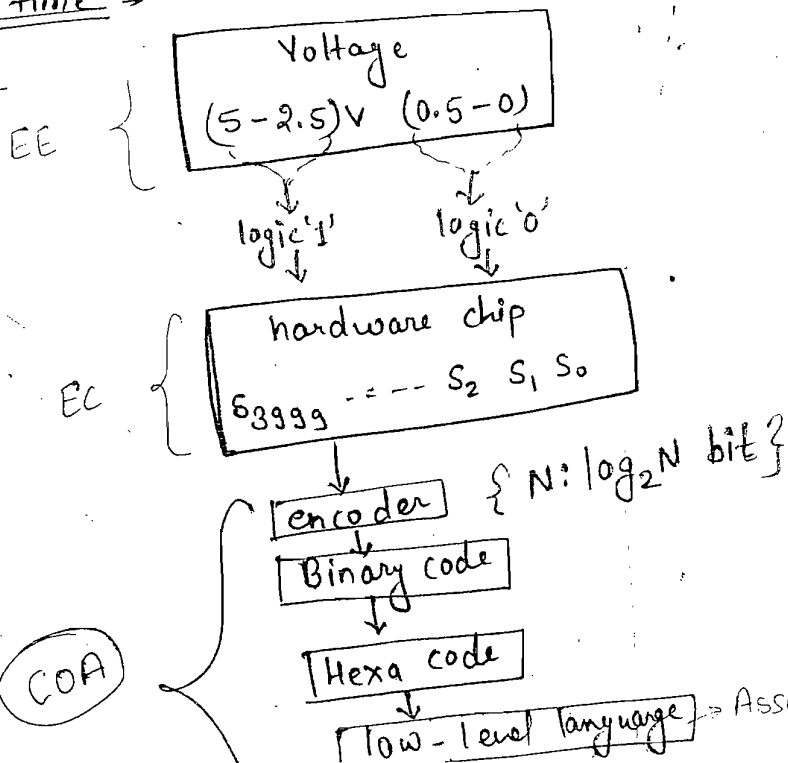 Time →
Voltage
EE
(5-2.5)V (0.5-0)
logic '1' logic '0'
hardware chip
EC
S3999 ---- S2 S1 S0
encoder { N: log2N bit }
Binary code
COA
Hexa code
low-level language → Ass